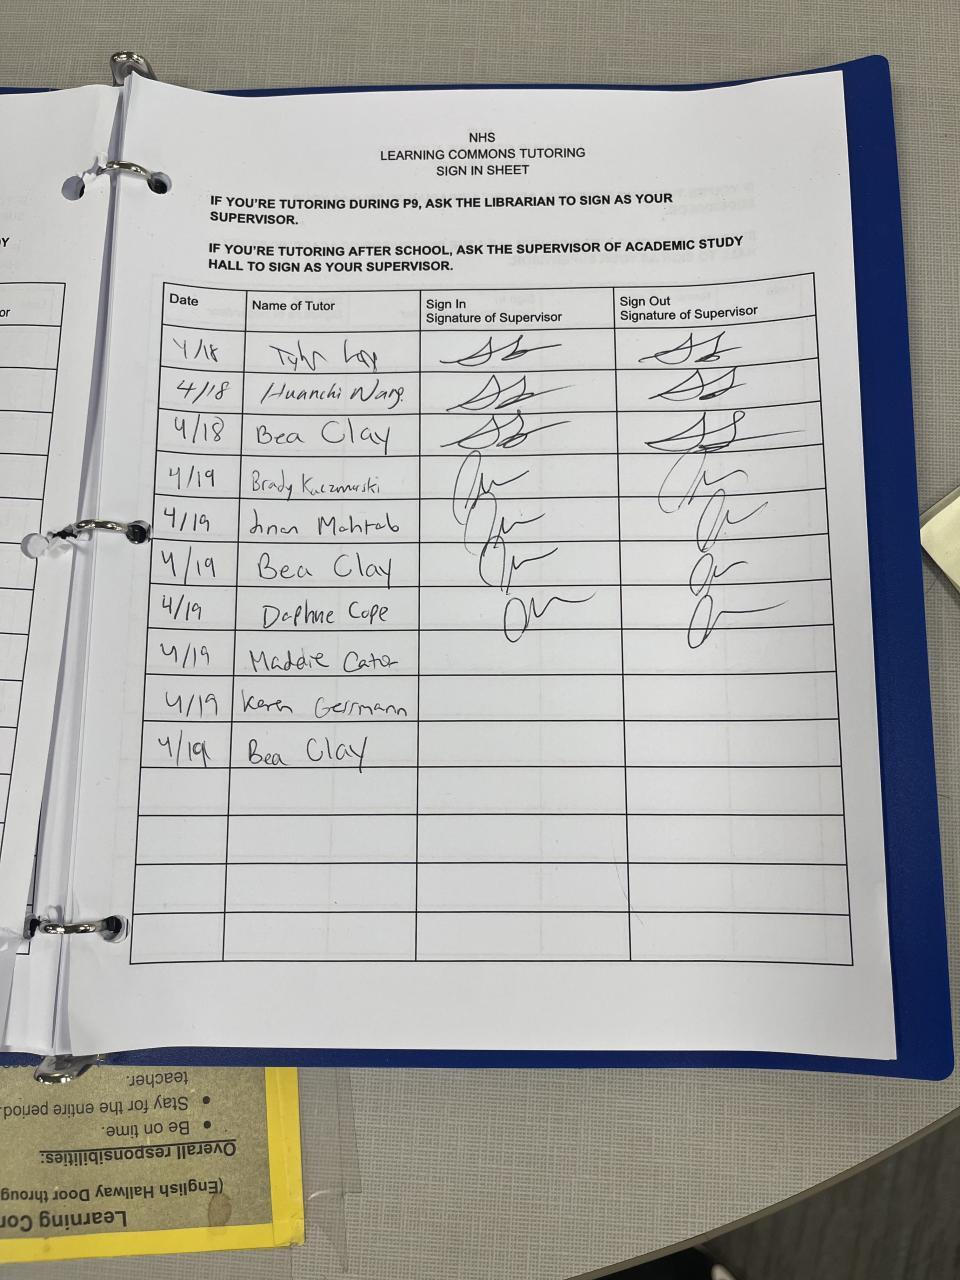 NHS
LEARNING COMMONS TUTORING
SIGN IN SHEET
IF YOU'RE TUTORING DURING P9, ASK THE LIBRARIAN TO SIGN AS YOUR
SUPERVISOR.
IF YOU'RE TUTORING AFTER SCHOOL, ASK THE SUPERVISOR OF ACADEMIC STUDY
HALL TO SIGN AS YOUR SUPERVISOR.
Date Name of Tutor Sign In Signature of Supervisor Sign Out Signature of Supervisor
4/18 Tyler
4/18 Huanchi Wang
4/18 Bea Clay
4/19 Brady Kaczmarski
4/19 Mahtab
4/19 Bea Clay
4/19 Daphne Cope
4/19 Maddie Cator
4/19 Karen Gersmann
4/19 Bea Clay
Y
or
Learning Co
(English Hallway Door throu
Overall responsibilities:
• Be on time.
• Stay for the entire period.
teacher.